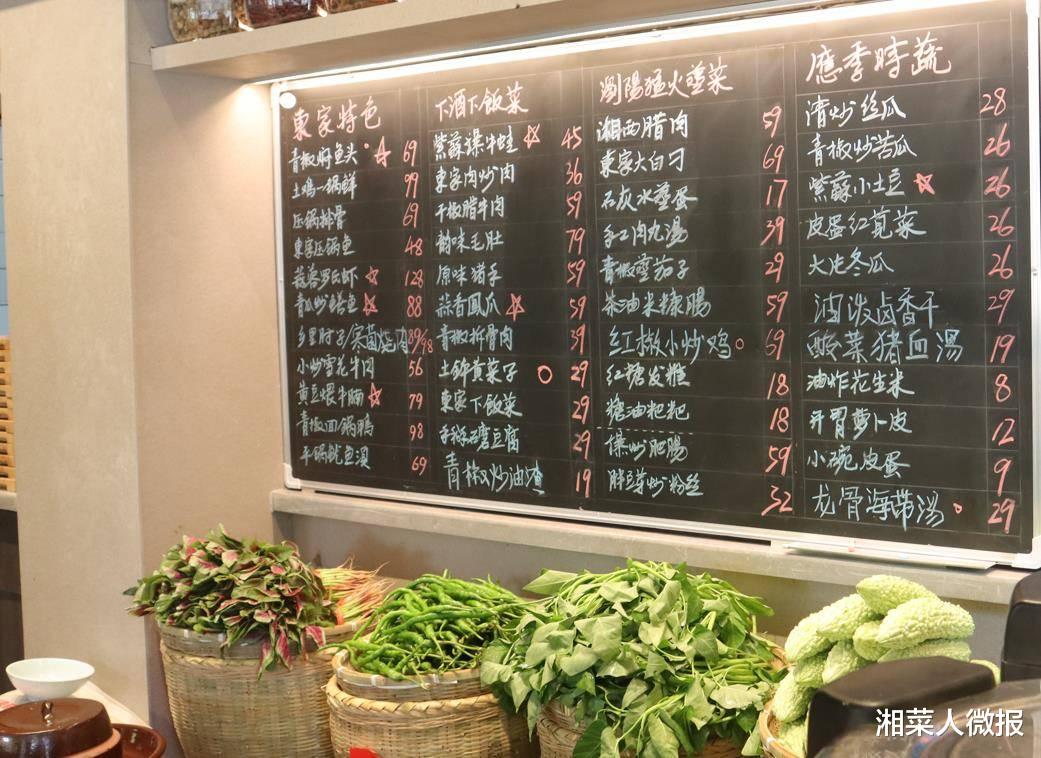 東家特色
青椒焖鱼头 69
土鸡一锅鲜 99
压锅排骨 69
東家压锅鱼 48
蒜蓉罗氏虾 128
青瓜炒鳝鱼 88
乡里肘子/寒菌烧肉 89/98
小炒雪花牛肉 56
黄豆煨牛腩 79
青椒回锅鴨 98
干锅鱿鱼须 69
下酒下飯菜
紫蘇爆牛蛙 45
東家肉炒肉 36
干椒腊牛肉 59
韵味毛肚 79
原味猪手 59
蒜香鳳爪 59
青椒拆骨肉 39
土錦黄菜子 29
東家下飯菜 29
手称石磨豆腐 29
青椒炒油渣 19
瀏陽猛火蒸菜
湘西腊肉 59
東家大白刁 69
石灰水蒸蛋 17
手工肉丸湯 39
青椒蒸茄子 29
茶油米糠腸 59
红椒小炒鸡 69
红糖发糕 18
糖油粑粑 18
爆炒肥腸 59
胖豆芽炒粉丝 32
應季時蔬
清炒丝瓜 28
青椒炒苦瓜 26
紫蘇小土豆 26
皮蛋红莧菜 26
大片冬瓜 26
油泼卤香干 29
酸菜猪血湯 19
油炸花生米 8
开胃萝卜皮 12
小碗皮蛋 9
龙骨海带湯 29
湘菜人微报